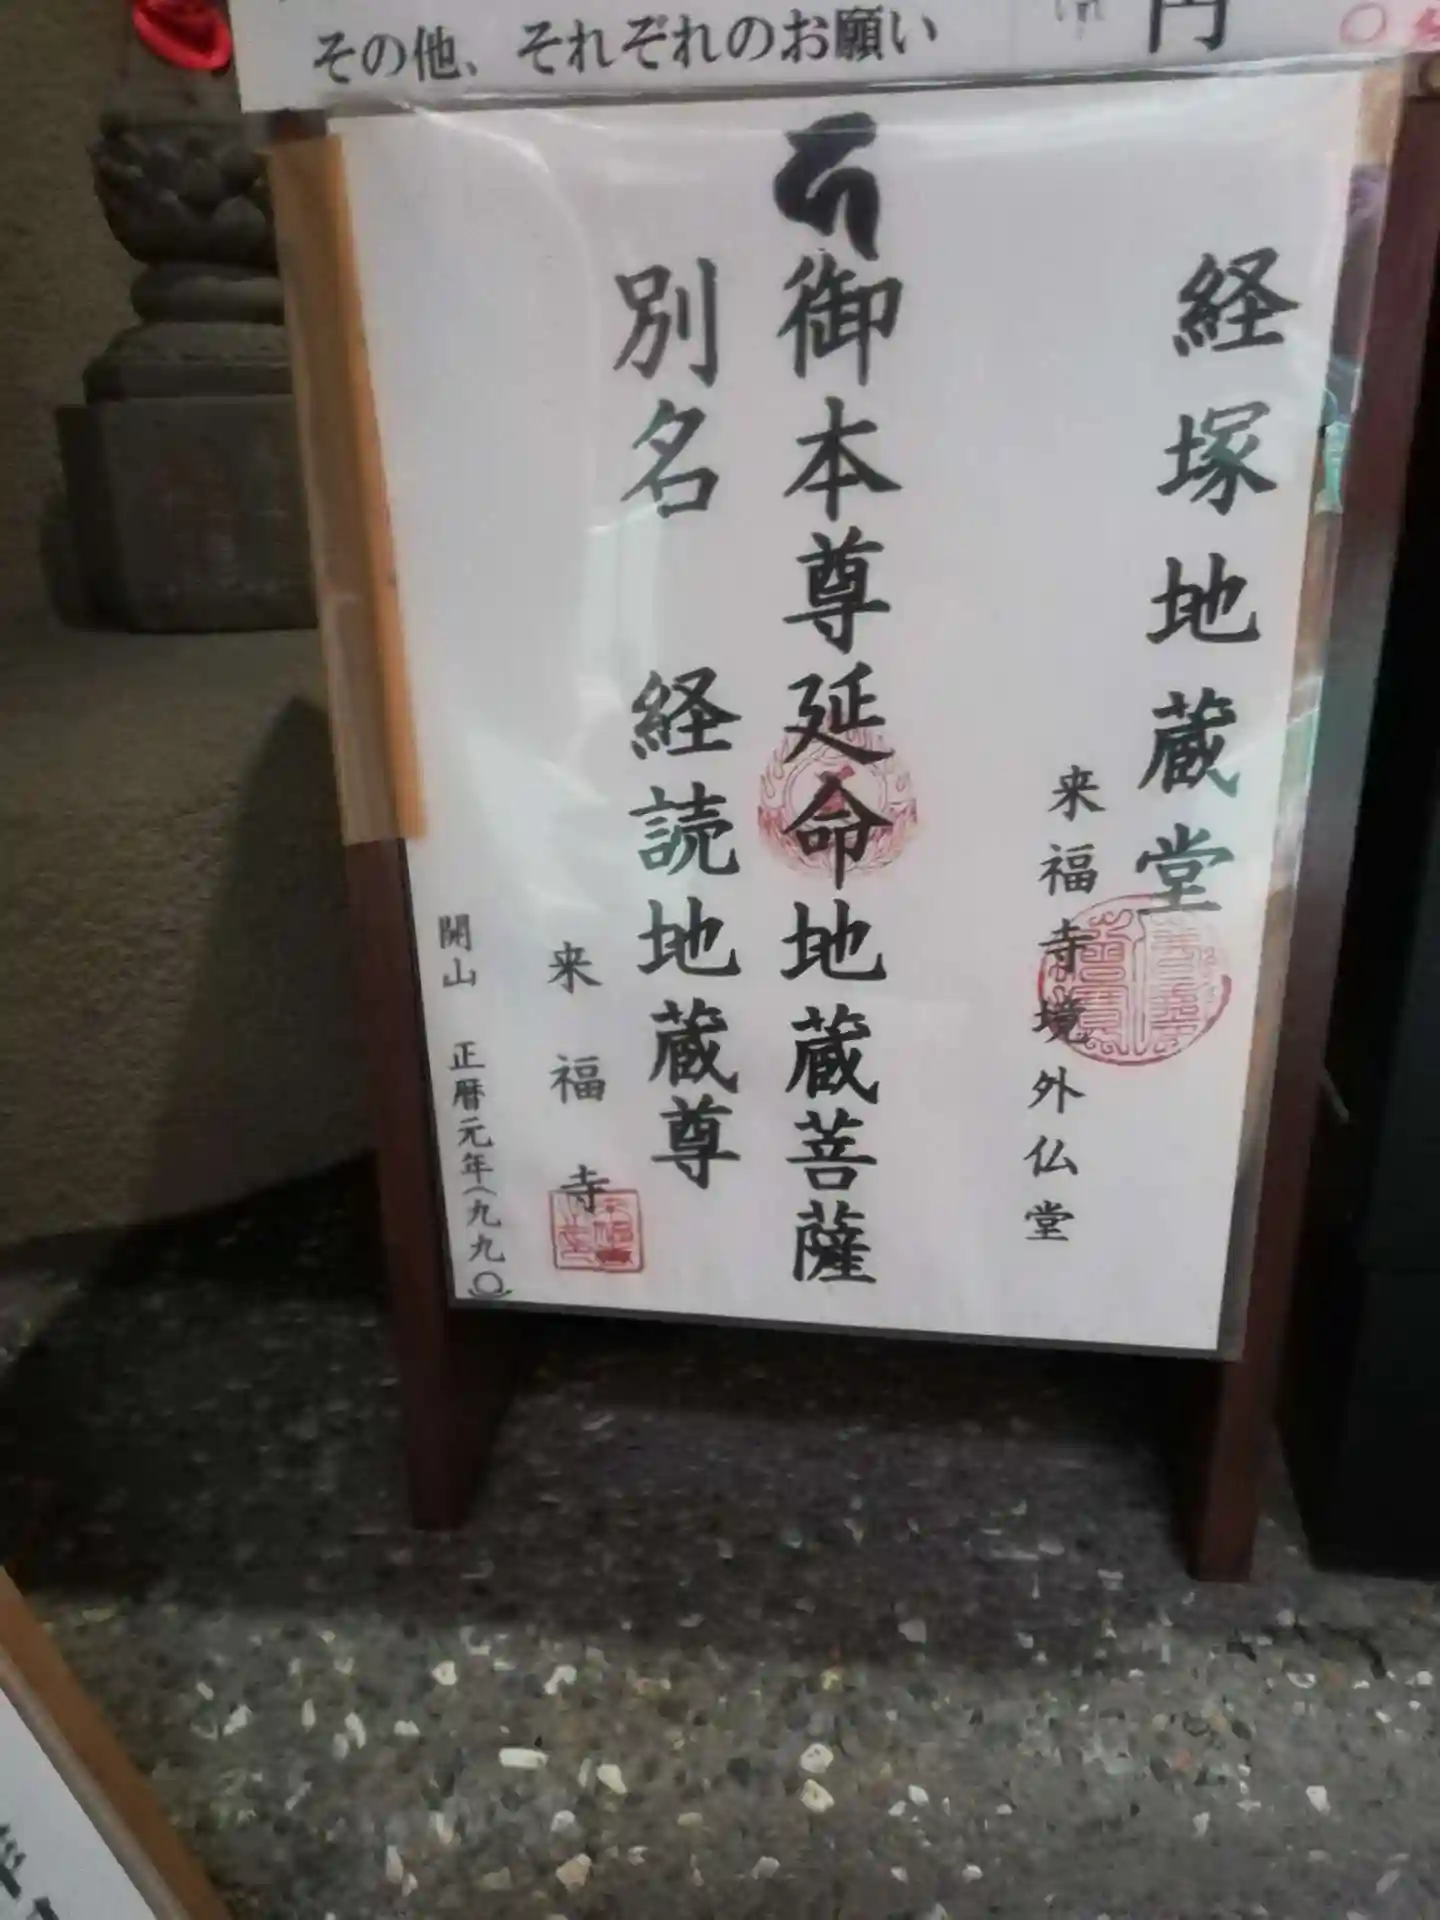 その他、それぞれのお願い
円
経塚地蔵堂
来福寺境外仏堂
御本尊延命地蔵菩薩
別名　経読地蔵尊
来福寺
開山　正暦元年（九九〇